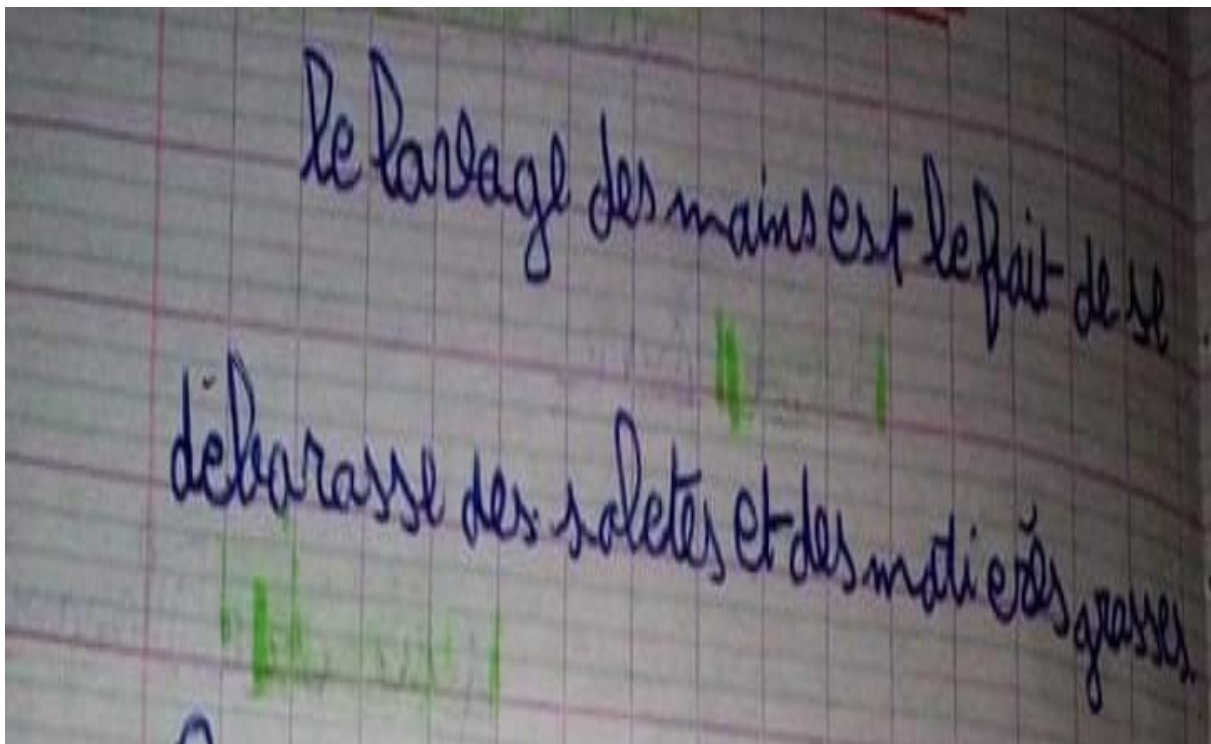 le lavage des mains est le fait de se
débarasse des saletés et des matières grasses.